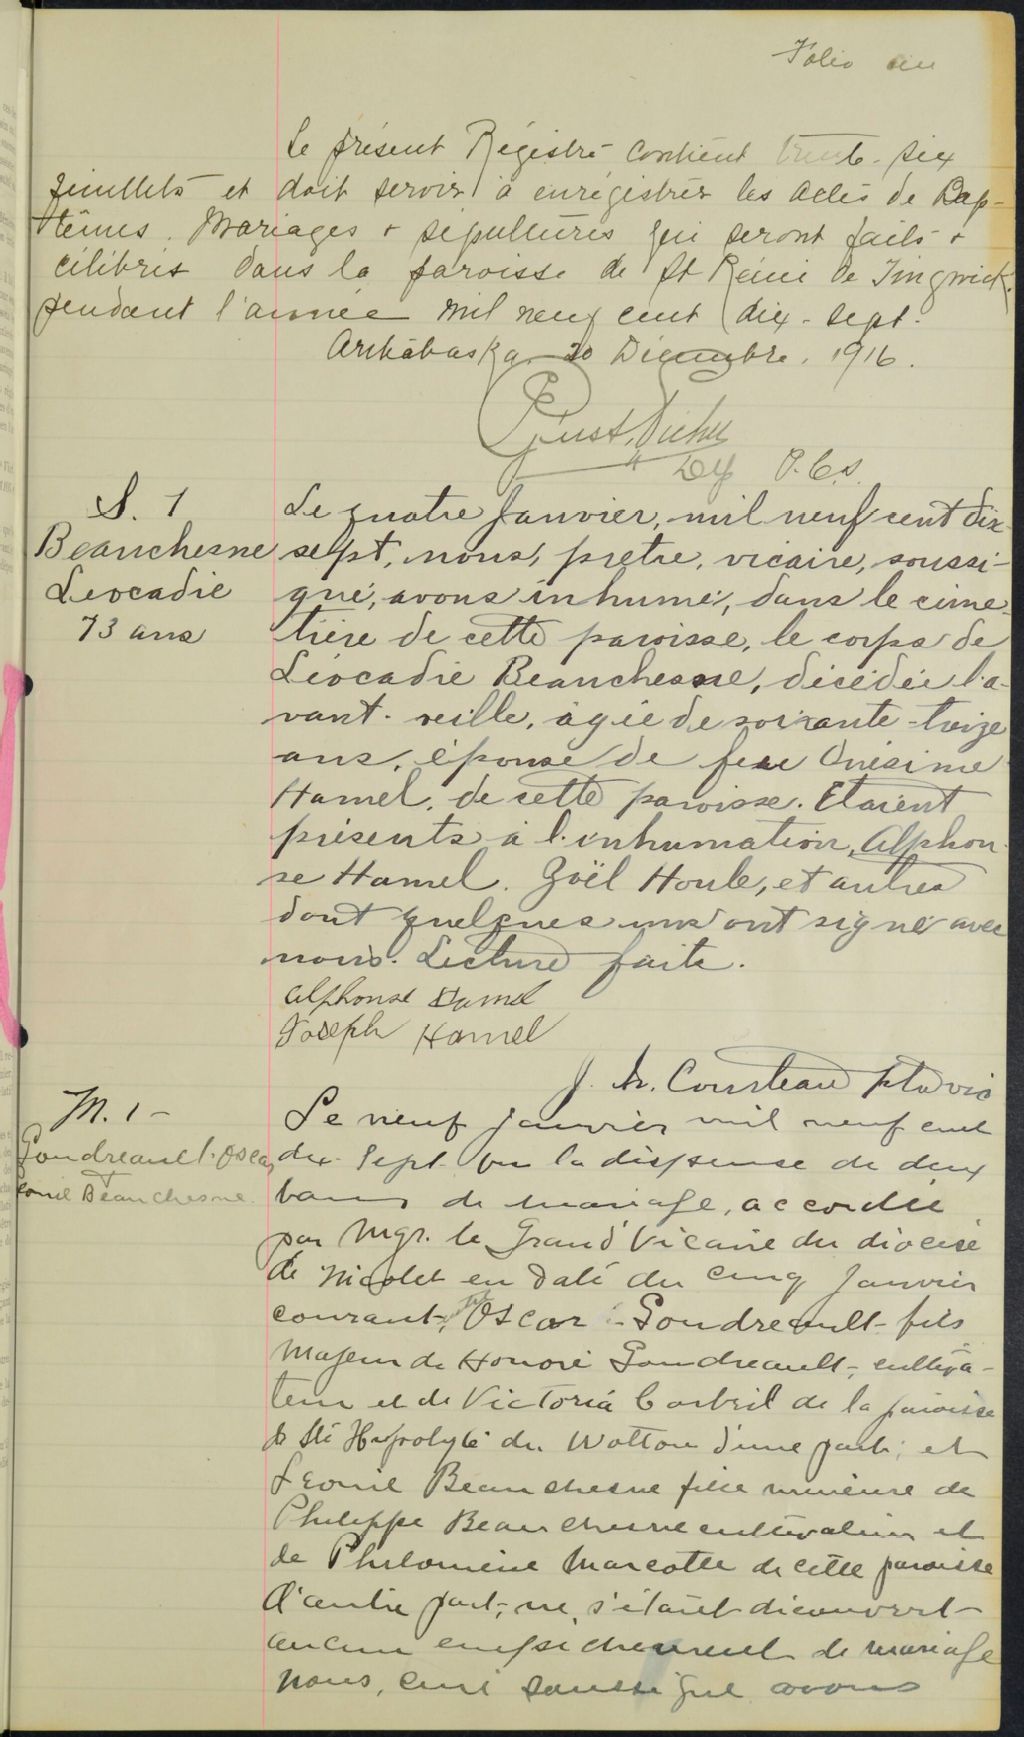 Folio un
Le présent Régistre contient trente-six
feuillets et doit servir à enrégistrer les actes de Bap-
têmes. Mariages & sépultures qui seront faits &
célébrés dans la paroisse de St Rémi de Tingwick
pendant l'année mil neuf cent dix-sept.
Arthabaska 20 Décembre. 1916.
Dep P.C.S.
S. 1
Beauchesne
Leocadie
73 ans
Le quatre Janvier, mil neuf cent dix-
sept, nous, prêtre, vicaire, soussi-
gné, avons inhumé, dans le cime-
tière de cette paroisse, le corps de
Léocadie Beauchesne, décédée l'a-
vant-veille, agée de soixante-treize
ans, épouse de feu Onésime
Hamel, de cette paroisse. Etaient
présents à l'inhumation, Alphon-
se Hamel. Joël Houle, et autres
dont quelques uns ont signé avec
nous. Lecture faite.
Alphonse Hamel
Joseph Hamel
J. h. Courteau ptre vic
M. 1 -
Goudreault Oscar
&
Leonie Beauchesne
Le neuf janvier mil neuf cent
dix-sept vu la dispense de deux
bans de mariage, accordée
par Mgr. le Grand Vicaire du diocèse
de Nicolet en date du cinq Janvier
courant, entre Oscar Goudreault fils
Majeur de Honoré Goudreault, cultiva-
teur et de Victoria Corbeil de la paroisse
de St Hypolyte de Wotton d'une part; et
Leonie Beauchesne fille mineure de
Philippe Beauchesne cultivateur et
de Philomène Marcotte de cette paroisse
d'autre part; ne s'étant découvert
aucun empêchement de mariage
Nous, curé soussigné avons